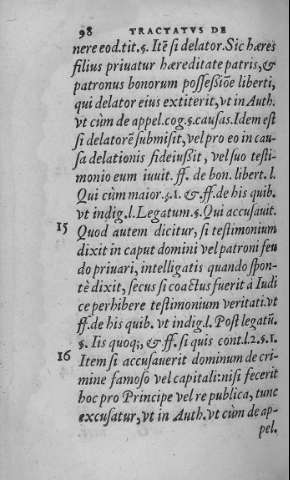 98 TRACTATVS DE
nere eod.tit.§. Itẽ si delator. Sic hæres
filius priuatur hæreditate patris,&
patronus bonorum possessiõe liberti,
qui delator eius extiterit, vt in Auth.
vt cùm de appel.cog.§.causas. Idem est
si delatorẽ submisit, vel pro eo in cau-
sa delationis fideiussit, vel suo testi-
monio eum iuuit. ff. de bon. libert. l.
Qui cùm maior.§.1. &.ff.de his quib.
vt indig.l. Legatum.§. Qui accusauit.
15 Quod autem dicitur, si testimonium
dixit in caput domini vel patroni feu
do priuari, intelligatis quando spon-
tè dixit, secus si coactus fuerit à Iudi
ce perhibere testimonium veritati.vt
ff.de his quib. vt indig.l. Post legatũ.
§. Iis quoq;, & ff. si quis cont.l.2.§.1.
16 Item si accusauerit dominum de cri-
mine famoso vel capitali: nisi fecerit
hoc pro Principe vel re publica, tunc
excusatur, vt in Auth. vt cùm de ap-
pel.